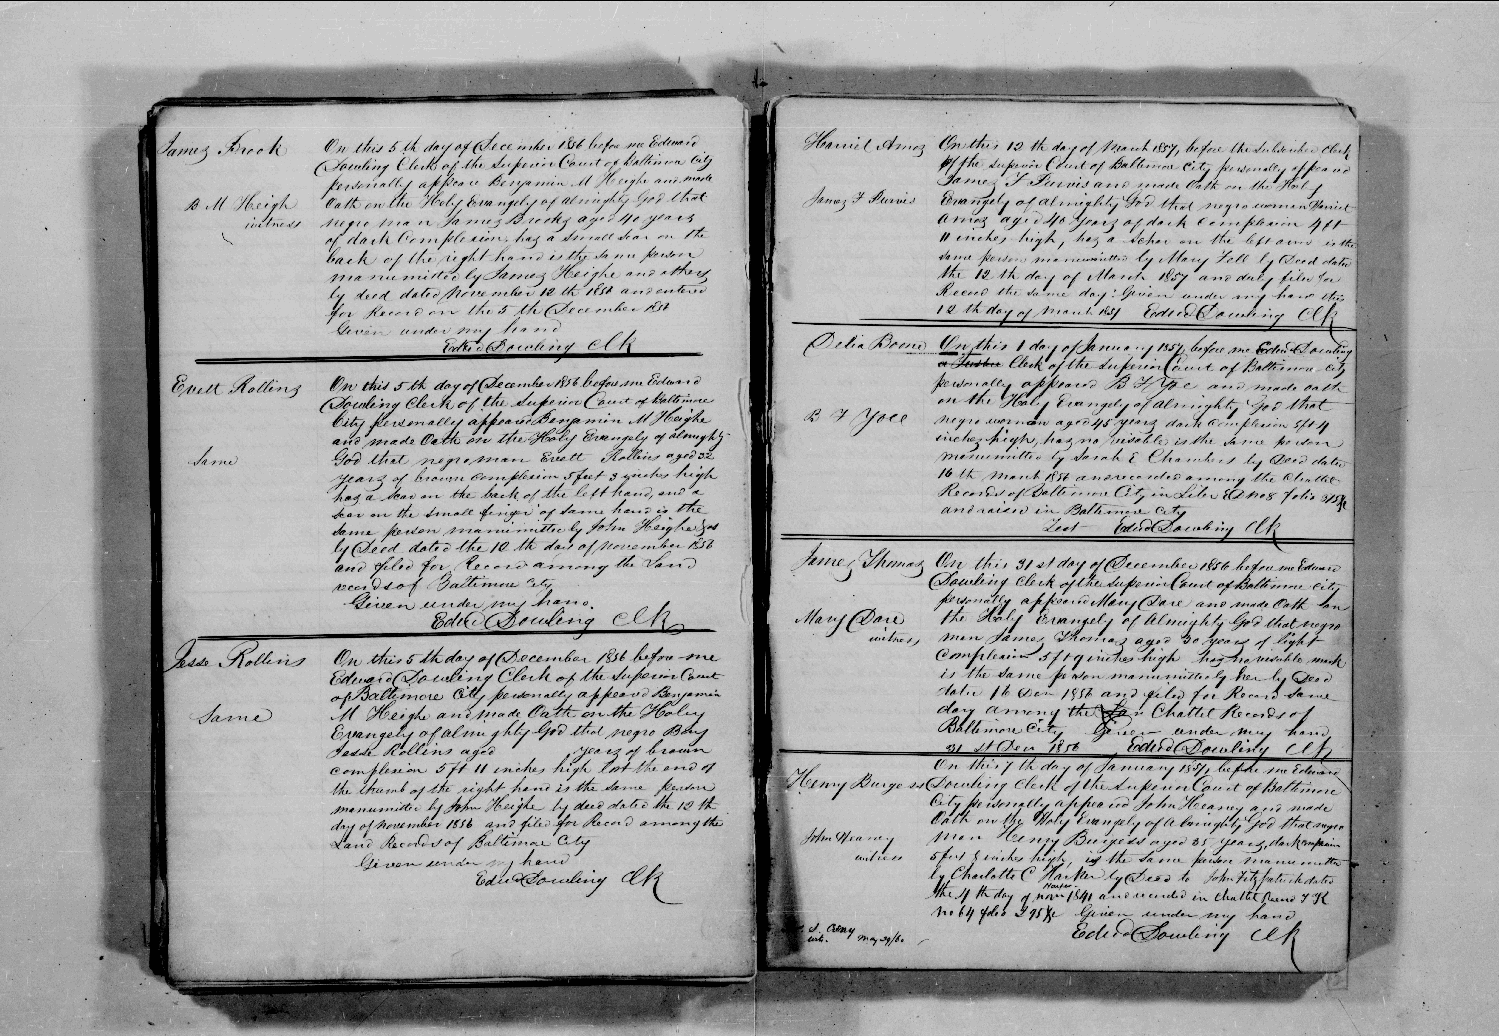 James Brook
B M Heigh
witness
On this 5th day of December 1856 before me Edward
Dowling Clerk of the Superior Court of Baltimore City
personally appeard Benjamin M Heighe and made
Oath on the Holy Evangely of almighty God that
negro man James Brooks aged 40 years
of dark Complexion, has a small scar on the
back of the right hand is the same person
manumitted by James Heighe and others
by deed dated November 12th 1856 and entered
for Record on the 5th December 1856
Given under my hand
Edwd Dowling Clk
Evett Rollins
Same
On this 5th day of December 1856 before me Edward
Dowling Clerk of the Superior Court of Baltimore
City personally appeared Benjamin M Heighe
and made Oath on the Holy Evangely of almighty
God that negro man Evett Rollins aged 32
years of brown complexion 5 feet 3 inches high
has a scar on the back of the left hand, and a
scar on the small finger of same hand is the
same person manumitted by John Heighe
by Deed dated the 12th day of November 1856
and filed for Record among the Land
records of Baltimore City
Given under my hand.
Edwd Dowling Clk
Jesse Rollins
Same
On this 5th day of December 1856 before me
Edward Dowling Clerk of the Superior Court
of Baltimore City personally appeard Benjamin
M Heighe and made Oath on the Holy
Evangely of almighty God that negro Boy
Jesse Rollins aged years of brown
complexion 5 ft 11 inches high lost the end of
the thumb of the right hand is the same person
manumitted by John Heighe by deed dated the 12th
day of November 1856 and filed for Record among the
Land Records of Baltimore City
Given under my hand
Edwd Dowling Clk
Harriet Amos
James F Purvis
On this 12th day of March 1857, before the subscriber Clerk
of the Superior Court of Baltimore City personally appeared
James F Purvis and made Oath on the Holy
Evangely of almighty God that negro woman Harriet
Amos aged 40 years of dark Complexion 4 ft
11 inches high, has a Schar on the left arm is the
same person manumitted by Mary Toll by Deed dated
the 12th day of March 1857 and duly filed for
Record the same day. Given under my hand this
12th day of March 1857 Edwd Dowling Clk
Delia Boone
B F Yoee
On this 1 day of January 1857 before me Edwd Dowling
Clerk of the Superior Court of Baltimore City
personally appeared B F Yoe and made oath
on the Holy Evangely of almighty God that
negro woman aged 45 years dark complexion 5 ft 4
inches high, has no visible is the same person
manumitted by Sarah E Chambers by Deed dated
16th March 1856 and recorded among the Chattel
Records of Baltimore City in Liber ED no 8 folio
and raised in Baltimore City
Test Edwd Dowling Clk
James Thomas
Mary Dare
witness
On this 31st day of December 1856 before me Edward
Dowling Clerk of the Superior Court of Baltimore City
personally appeared Mary Dare and made Oath on
the Holy Evangely of almighty God that negro
man James Thomas aged 30 years of light
complexion 5 ft 9 inches high has no visible mark
is the same person manumitted by her by Deed
dated 16 Decr 1856 and filed for Record same
day among the Chattel Records of
Baltimore City Given under my hand
31st Decr 1856 Edwd Dowling Clk
Henry Burgess
John Heaney
witness
On this 7th day of January 1857, before me Edward
Dowling Clerk of the Superior Court of Baltimore
City personally appeared John Heaney and made
Oath on the Holy Evangely of Almighty God that negro
man Henry Burgess aged 35 years, dark complexion
5 feet 8 inches high, is the same person manumitted
by Charlotte C Harker by Deed to John Fitzpatrick dated
the 4th day of 1841 and recorded in Chattel Record T K
no 64 folio &c Given under my hand
Edwd Dowling Clk
May 29/60